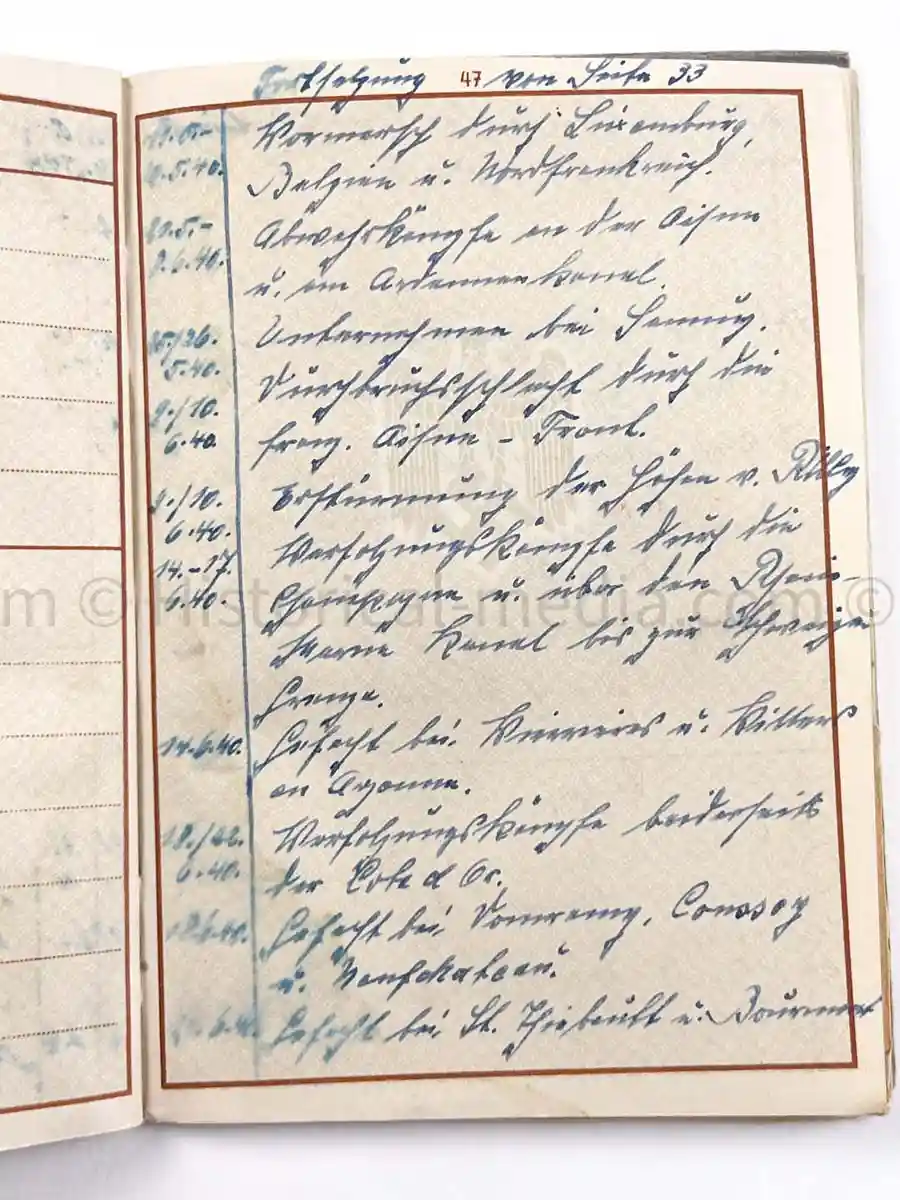 Fortsetzung 47 von Seite 33
Vormarsch durch Luxemburg,
10.5.40. Belgien u. Nordfrankreich.
20.5.- Abwehrkämpfe an der Aisne
9.6.40. u. am Ardennenkanal.
25./26. Unternehmen bei Semuy.
5.40. Durchbruchsschlacht durch die
9./10.
6.40. franz. Aisne - Front.
9./10. Erstürmung der Höhen v. Rilly
6.40.
14.-17. Verfolgungskämpfe durch die
6.40. Champagne u. über den Rhein-
Marne Kanal bis zur Schweizer
Grenze.
14.6.40. Gefecht bei u. Villers
en Argonne.
18./22. Verfolgungskämpfe beiderseits
6.40. der Cote d Or.
Gefecht bei Domremy, Coussey
u. Neufchateau.
Gefecht bei St. Thiebault u. Bourmont
m © Historical-media.com ©